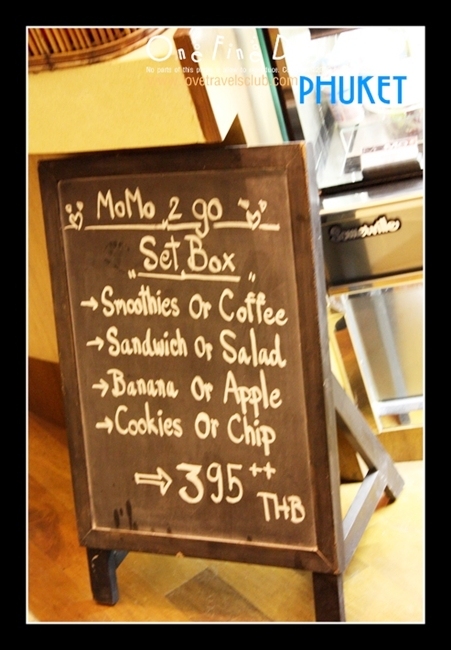 One Fine D
No parts of this
lovetravelsclub.com
PHUKET
MoMo 2 go
"Set Box"
→Smoothies Or Coffee
→Sandwich Or Salad
→Banana Or Apple
→Cookies Or Chip
⇒395++
THB